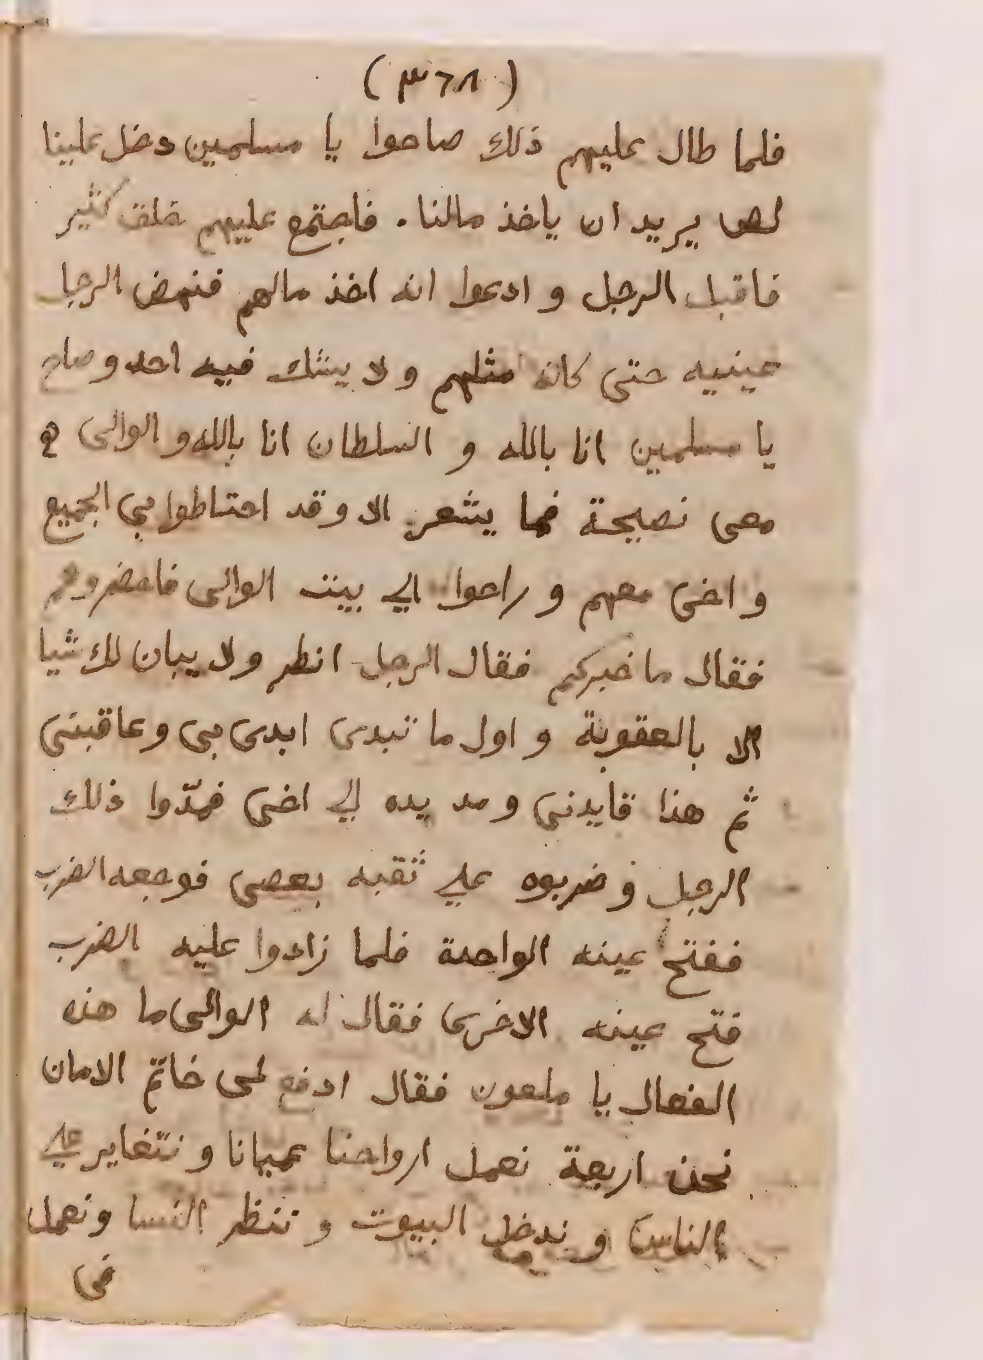 (٣٦٨)
فلما طال عليهم ذلك صاحوا يا مسلمين دخل علينا
لص يريد ان ياخذ مالنا. فاجتمع عليهم خلق كثير
فاقبل الرجل و ادعوا انه اخذ مالهم فنمض الرجل
عينيه حتى كانه مثلهم و لا يشك فيه احد و صاح
يا مسلمين انا بالله و السلطان انا بالله و الوالى
معى نصيحة فما يشعر الا و قد احتاطوا بهى الجميع
و اخى معهم و راحوا الي بيت الوالى فاحضروهم
فقال ما خبركم فقال الرجل انظر و لا يبان لك شيا
الا بالعقوبة و اول ما تبدى ابدى بى و عاقبنى
ثم هذا قايدنى و مد يده الي اخى فمدّوا ذلك
الرجل و ضربوه علي ثقبه بعصى فوجعه الضرب
ففتح عينه الواحدة فلما زادوا عليه الضرب
فتح عينه الاخرى فقال له الوالى ما هذه
الفعال يا ملعون فقال ادفع لى خاتم الامان
نحن اربعة نعمل ارواحنا عميانا و نتغاير علي
الناس و ندخل البيوت و ننظر النسا و نعمل
فى